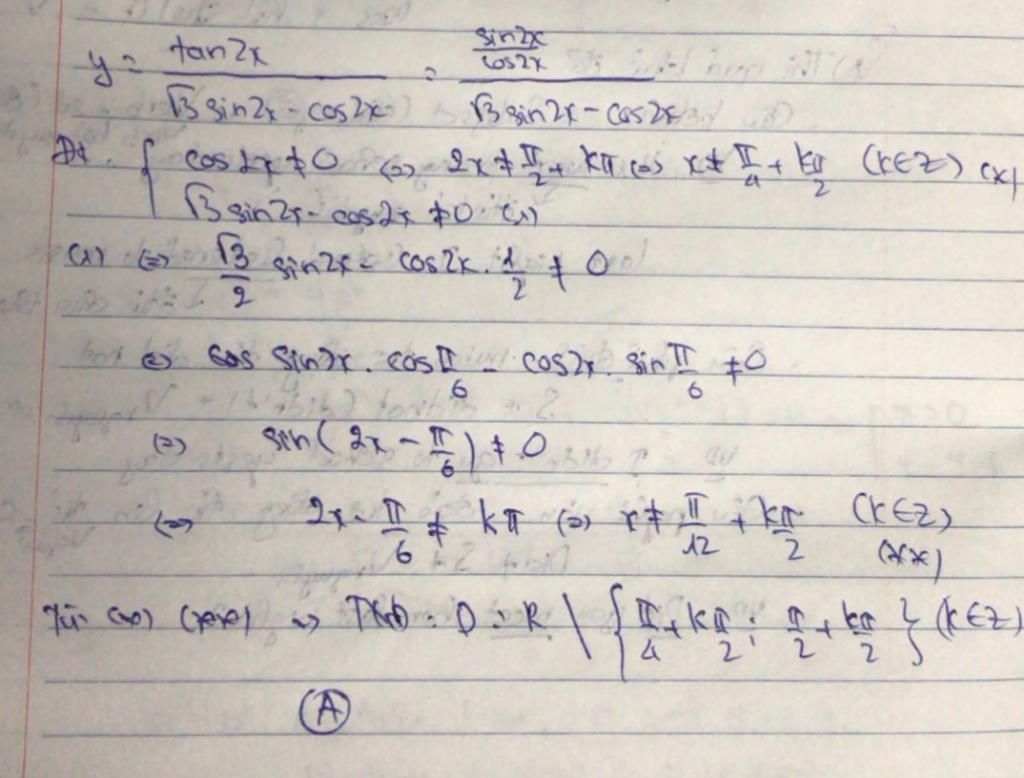 y = \frac{tan2x}{√3 sin2x - cos2x} = \frac{\frac{sin2x}{cos2x}}{√3 sin2x - cos2x}
{ cos2x ≠ 0 (=) 2x ≠ π/2 + kπ (=) x ≠ π/4 + kπ/2 (k∈Z) (x)
√3 sin2x - cos2x ≠ 0 (1)
(1) (=) √3/2 sin2x - cos2x . 1/2 ≠ 0
(=) cos sin2x . cos π/6 - cos2x . sin π/6 ≠ 0
(=) sin(2x - π/6) ≠ 0
(=) 2x - π/6 ≠ kπ (=) x ≠ π/12 + kπ/2 (k∈Z)
(xx)
Từ (x) (xx) => TXĐ : D = R \ { π/4 + kπ/2 ; π/2 + kπ/2 } (k∈Z)
A